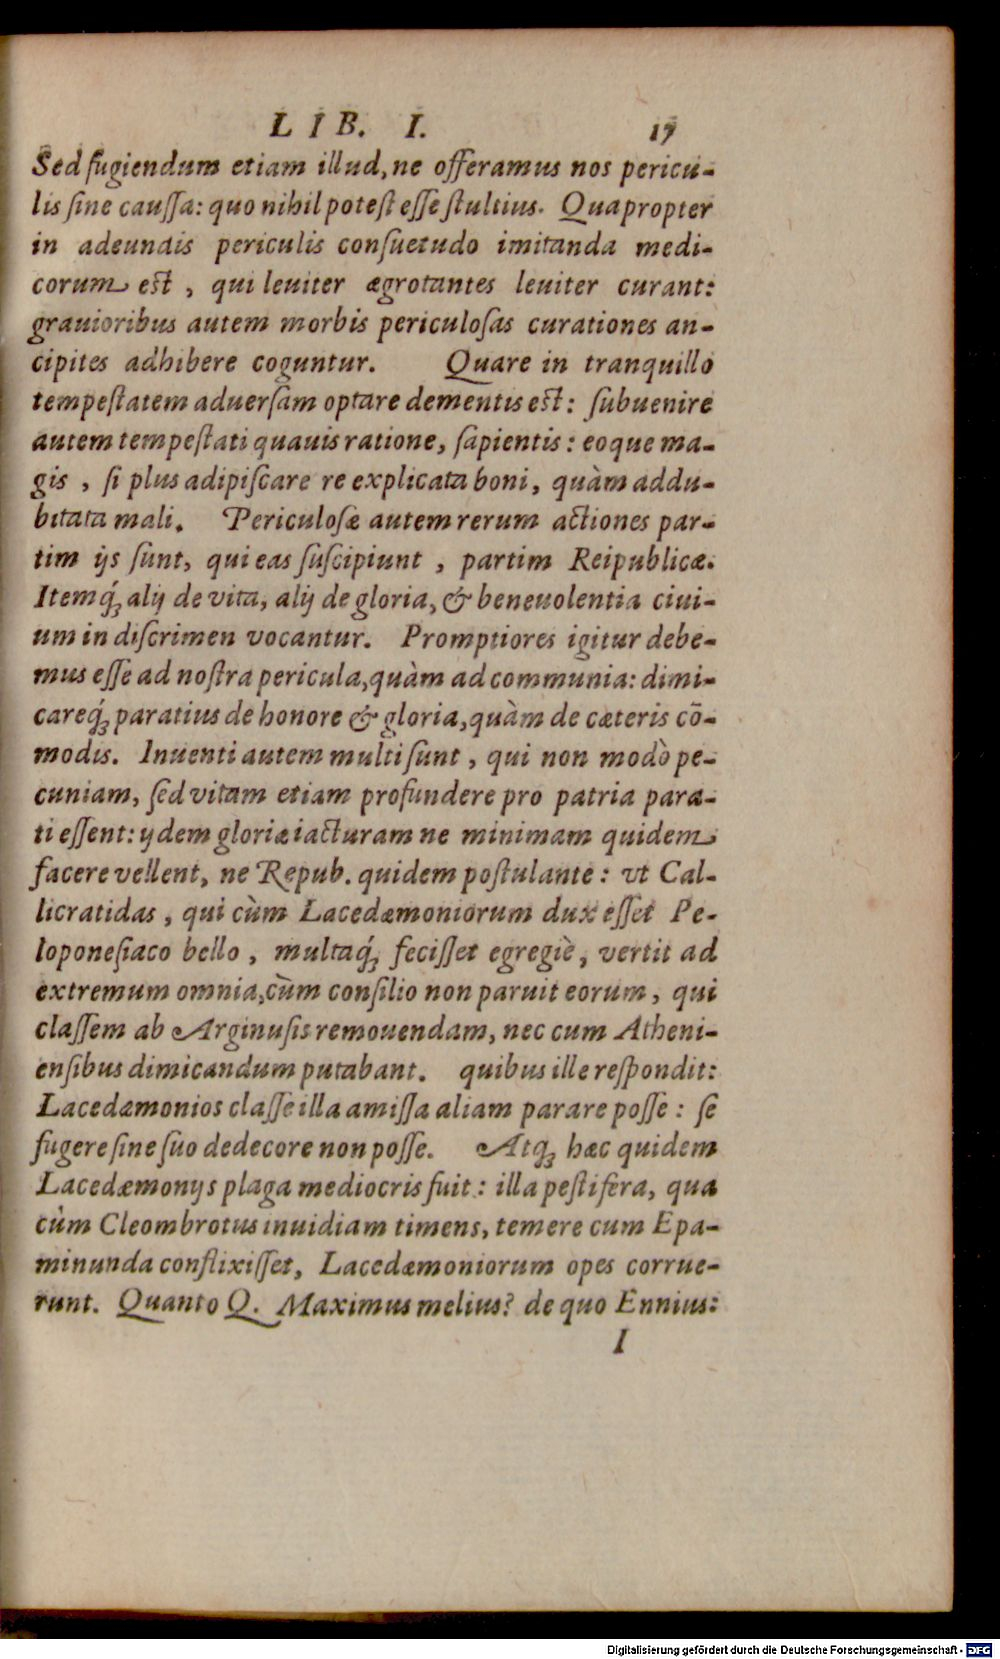 LIB. I. 17
Sed fugiendum etiam illud, ne offeramus nos pericu-
lis ſine cauſſa: quo nihil poteſt eſſe ſtultius. Quapropter
in adeundis periculis conſuetudo imitanda medi-
corum eſt, qui leuiter ægrotantes leuiter curant:
grauioribus autem morbis periculoſas curationes an-
cipites adhibere coguntur. Quare in tranquillo
tempeſtatem aduerſam optare dementis eſt: ſubuenire
autem tempeſtati quauis ratione, ſapientis: eoque ma-
gis, ſi plus adipiſcare re explicata boni, quàm addu-
bitata mali. Periculoſæ autem rerum actiones par-
tim ijs ſunt, qui eas ſuſcipiunt, partim Reipublicæ.
Itemq́ꝫ alij de vita, alij de gloria, & beneuolentia ciui-
um in diſcrimen vocantur. Promptiores igitur debe-
mus eſſe ad noſtra pericula, quàm ad communia: dimi-
careq́ꝫ paratius de honore & gloria, quàm de cæteris cō-
modis. Inuenti autem multi ſunt, qui non modò pe-
cuniam, ſed vitam etiam profundere pro patria para-
ti eſſent: ijdem gloriæ iacturam ne minimam quidem
facere vellent, ne Repub. quidem poſtulante: vt Cal-
licratidas, qui cùm Lacedæmoniorum dux eſſet Pe-
loponeſiaco bello, multaq́ꝫ feciſſet egregiè, vertit ad
extremum omnia, cùm conſilio non paruit eorum, qui
claſſem ab Arginuſis remouendam, nec cum Atheni-
enſibus dimicandum putabant. quibus ille reſpondit:
Lacedæmonios claſſe illa amiſſa aliam parare poſſe: ſe
fugere ſine ſuo dedecore non poſſe. Atqꝫ hæc quidem
Lacedæmonijs plaga mediocris fuit: illa peſtifera, qua
cùm Cleombrotus inuidiam timens, temere cum Epa-
minunda conflixiſſet, Lacedæmoniorum opes corrue-
runt. Quanto Q. Maximus melius? de quo Ennius:
I
Digitalisierung gefördert durch die Deutsche Forschungsgemeinschaft - DFG